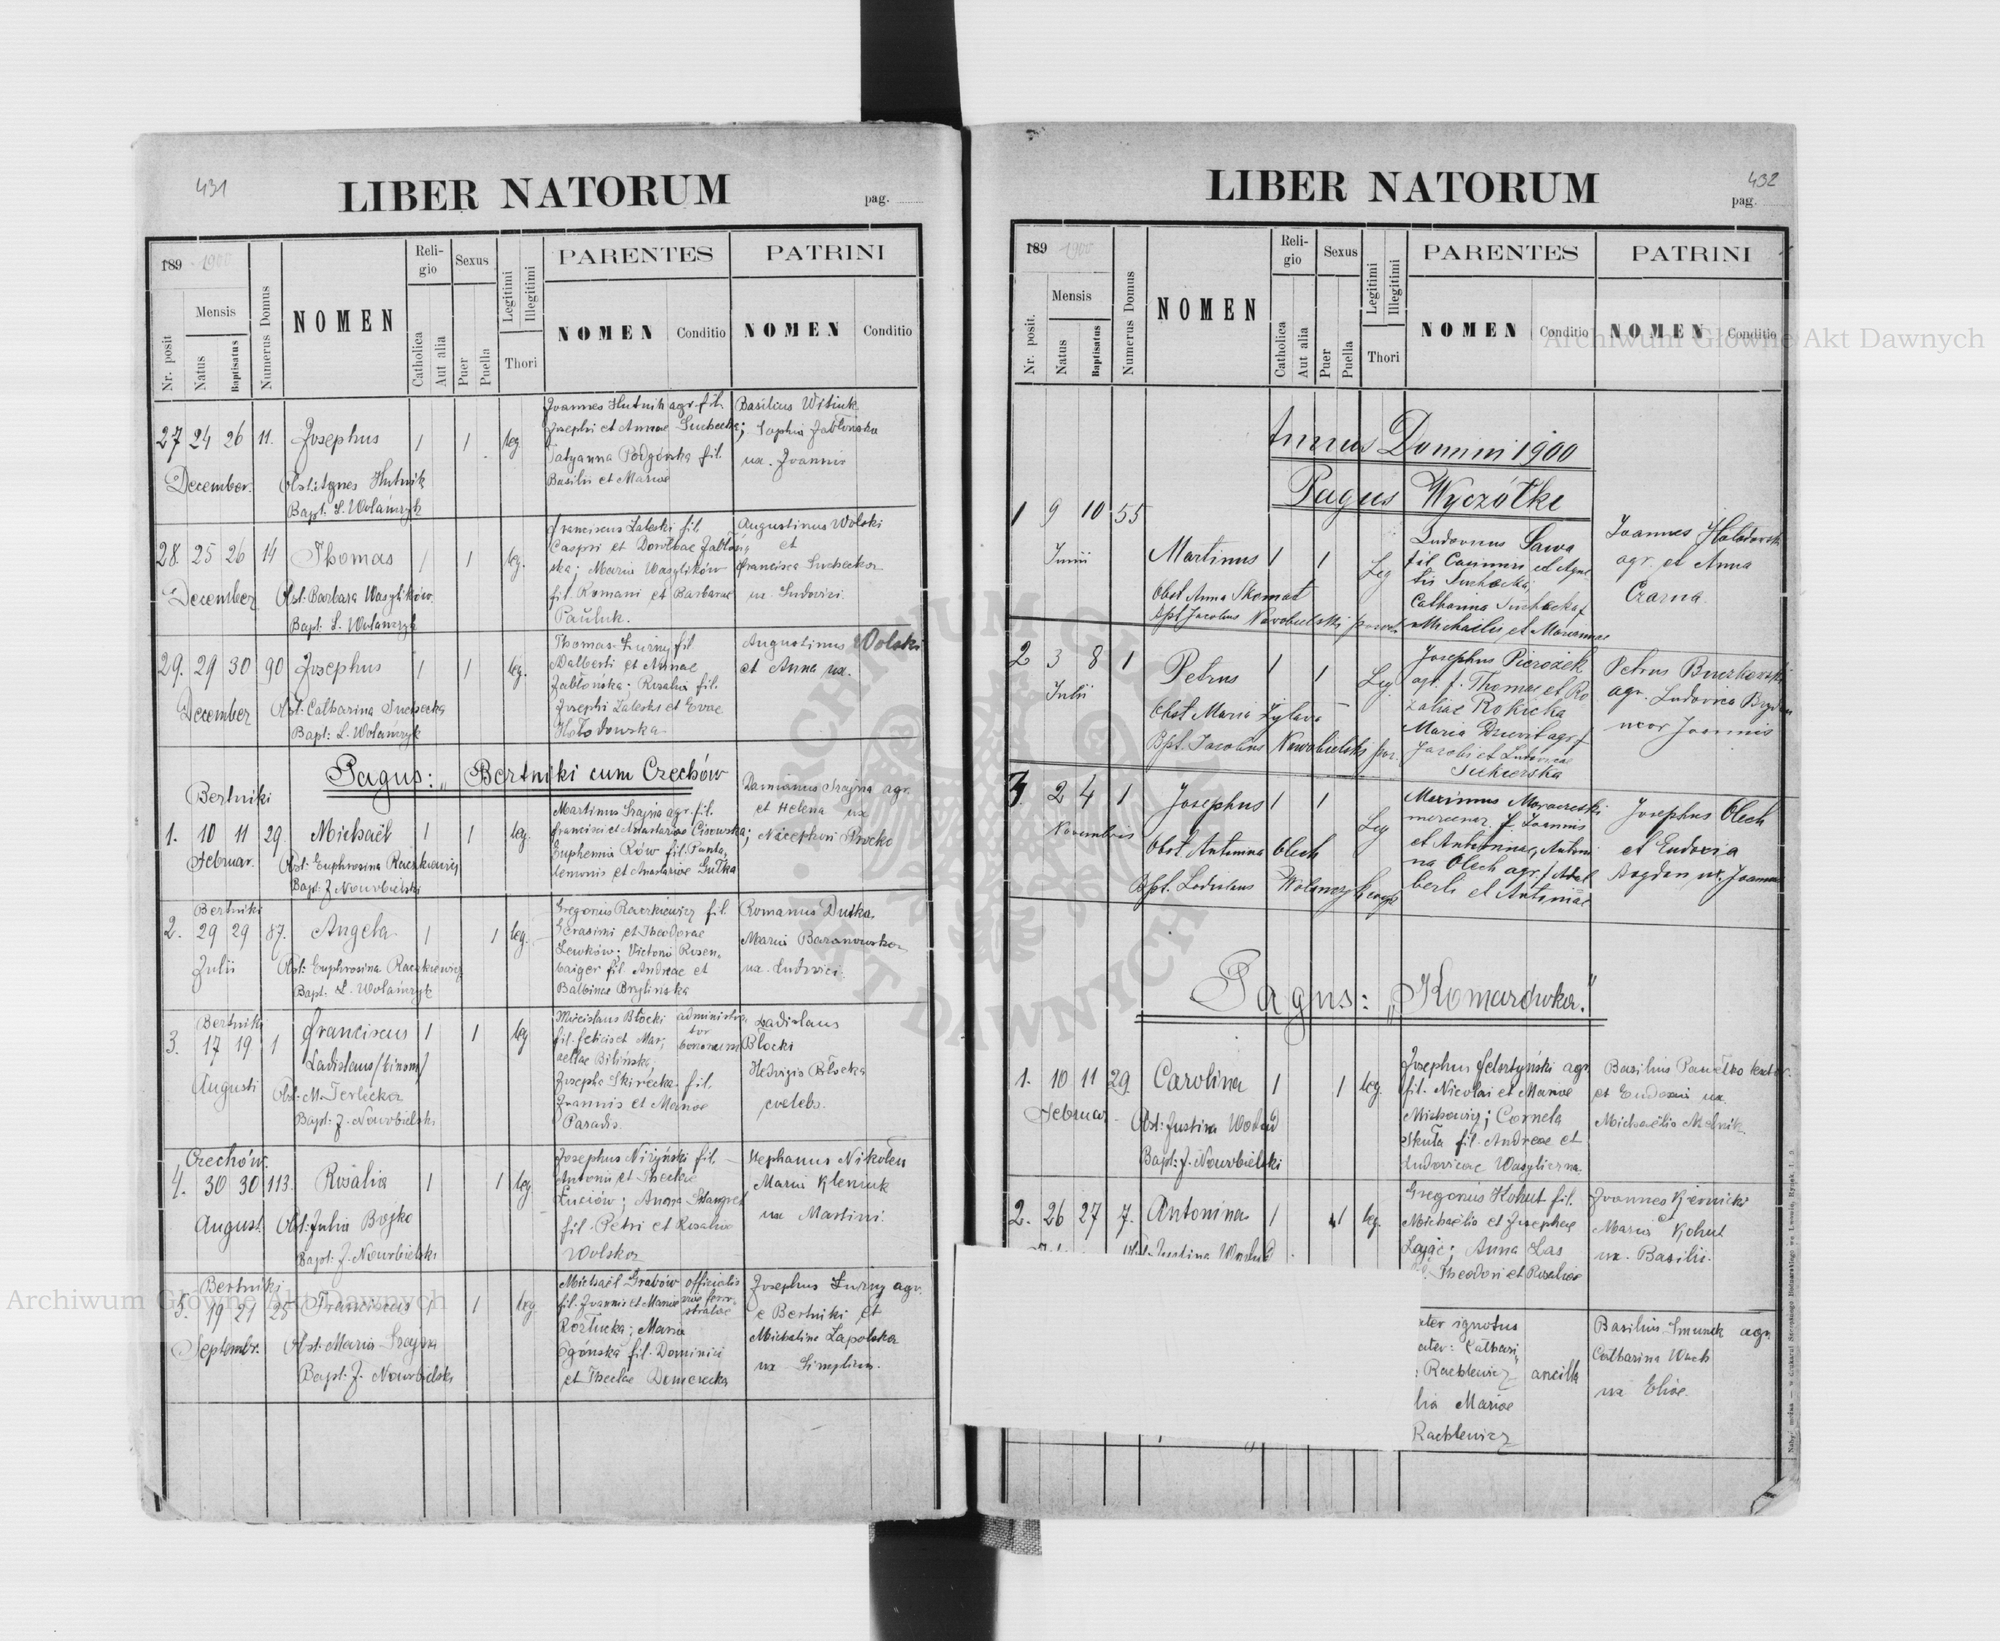 431
LIBER NATORUM
pag.
189 1900
Mensis
Nr. posit
Natus
Baptisatus
Numerus Domus
NOMEN
Religio
Catholica
Aut alia
Sexus
Puer
Puella
Legitimi
Illegitimi
Thori
PARENTES
NOMEN
Conditio
PATRINI
NOMEN
Conditio
27 24 26 11. Josephus 1 1 leg.
December. Obst: Agnes Hutnik
Bapt: L. Wolańczyk
Joannes Hutnik agr. fil.
Josephi et Annae Suchecka;
Tatyanna Podgórska fil.
Basilii et Mariae
Basilius
Sophia Jabłońska
ux. Joannis
28. 25 26 14 Thomas 1 1 leg.
December Obst: Barbara Wasylików
Bapt: L. Wolańczyk
Franciscus Zaleski fil.
Caspri et Dorotheae Jabłoń-
ska; Maria Wasylików
fil. Romani et Barbarae
Pauluk.
Augustinus Wolski
et
Francisca Suchecka
ux. Ludovici.
29. 29 30 90 Josephus 1 1 leg.
December Obst: Catharina Suchecka
Bapt: L. Wolańczyk
Thomas Żurny fil
Adalberti et Annae
Jabłońska; Rosalia fil.
Josephi Zaleski et Evae
Hołodowska
Augustinus Wolski
et Anna ux.
Pagus: „Bertniki cum Czechów
Bertniki
1. 10 11 29. Michaël 1 1 leg.
Februar. Obst: Euphrosina Raczkiewicz
Bapt: J. Nowobielski
Martinus Szajna agr. fil.
Francisci et Anastasiae Cisowska;
Euphemia Rów fil. Panta-
lemonis et Anastasiae Gułka
Damianus Szajna agr.
et Helena ux
Nicephori
Bertniki
2. 29 29 87. Angela 1 1 leg.
Julii Obst: Euphrosina Raczkiewicz
Bapt: L. Wolańczyk
Gregorius Raczkiewicz fil.
Gerasimi et Theodorae
Lewków; Victoria Rosen-
baiger fil. Andreae et
Balbinae Brylinska
Romanus Dutka
Maria Baranowska
ux. Ludovici.
Bertniki
3. 17 19 1 Franciscus 1 1 leg
Ladislaus /binom/
Augusti Obst: M. Terlecka
Bapt: J. Nowobielski
Miecislaus Błocki administra-
tor
fil. Felicis et Mar- bonorum
cellae Bilińska;
Josepha Skirecka fil.
Joannis et Mariae
Paradis.
Ladislaus
Błocki
Hedvigis Błocka
coelebs.
Czechów.
4. 30 30 113. Rosalia 1 1 leg.
August. Obst: Julia Bojko
Bapt: J. Nowobielski
Josephus Niżyński fil.
Antonii et Theclae
Łuciów; Anna
fil. Petri et Rosaliae
Wolska
Stephanus Nikolen
Maria Kleniuk
ux Martini.
Bertniki
5. 19 21 25 Franciscus 1 1 leg.
Septembr. Obst: Maria Szajna
Bapt: J. Nowobielski
Michaël Grabów officialis
fil. Joannis et Mariae viae ferro-
stratae
Roztucka; Maria
Ogónska fil. Dominici
et Theclae Domerecka
Josephus Żurny agr.
e Bertniki et
Michalina Lapolska
ux Simplicii.
432
LIBER NATORUM
pag.
189 1900
Mensis
Nr. posit.
Natus
Baptisatus
Numerus Domus
NOMEN
Religio
Catholica
Aut alia
Sexus
Puer
Puella
Legitimi
Illegitimi
Thori
PARENTES
NOMEN
Conditio
PATRINI
NOMEN
Conditio
Annus Domini 1900
Pagus Wyczółki
1 9 10 55
Junii Martinus 1 1 Leg
Obst Anna Skomat
Bpt Jacobus Nowobielski paroch
Ludovicus Sawa
fil Casimiri et Agne-
tis Suchecka;
Catharina Suchecka f
Michaelis et Marianae
Joannes Hołodowski
agr. et Anna
Czarna
2 3 8 1 Petrus 1 1 Leg
Julii
Obst Maria Żylava
Bpt. Jacobus Nowobielski par.
Josephus Pierożek
agr. f. Thomae et Ro
zaliae Rokicka
Maria agr f
Jacobi et Ludovicae
Sikierska
Petrus Buczkowski
agr. Ludovica Bogdan
uxor Joannis
3. 2 4 1 Josephus 1 1 Leg
Novembris
Obst Antonina Olech
Bpt. Ladislaus Wolanczyk coop
Maximus
mercenar. f. Joannis
et Antoninae, Antoni
na Olech agr. f Adal
berti et Antoniae
Josephus Olech
et Eudoxia
Bogdan ux. Joannis
Pagus: „Komarówka."
1. 10 11 29 Carolina 1 1 leg.
Februar. Obst: Justina
Bapt: J. Nowobielski
Josephus Felsztyński agr.
fil. Nicolai et Mariae
Miskewicz; Cornela
Skuła fil. Andreae et
Ludovicae Wasyliczna
Basilius Pawełko
et Eudoxia ux.
Michaëlis Melnik
2. 26 27 7. Antonina 1 1 leg.
Obst Justina
Gregorius Kohut fil.
Michaëlis et Josephae
Zając; Anna Las
Theodori et Rosaliae
Joannes Kiernicki
et
Maria Kohut
ux. Basilii.
ater ignotus
ater: Cathari-
Rachlewicz ancilla
lia Mariae
Rachlewicz
Basilius Smunek agr.
Catharina Wach
ux Eliae.
Archiwum Główne Akt Dawnych
Archiwum Główne Akt Dawnych
ARCHIWUM GŁÓWNE AKT DAWNYCH